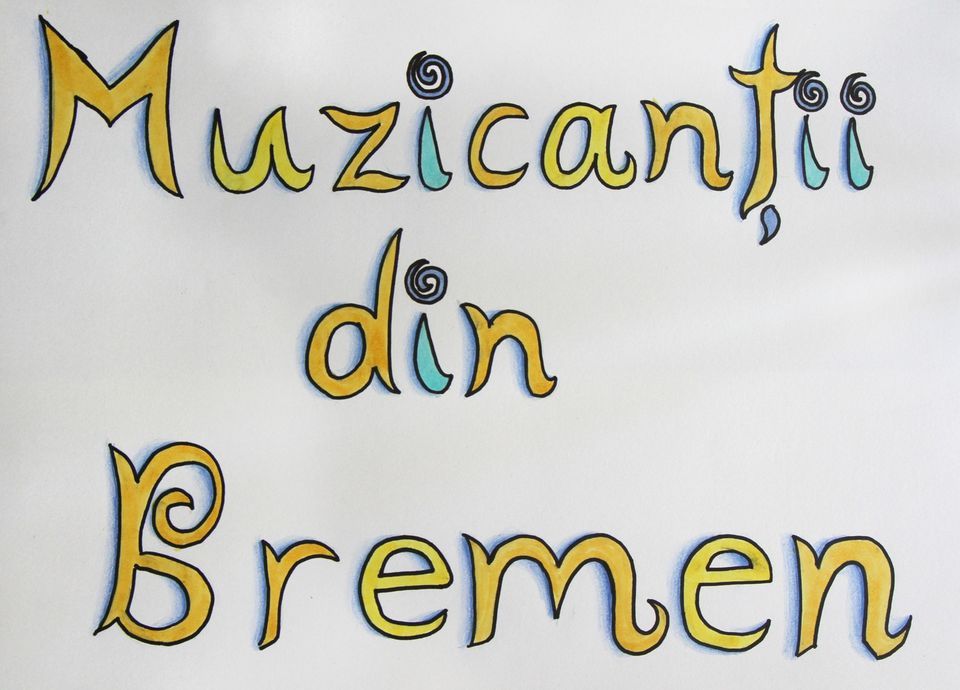 Muzicanții
din
Bremen